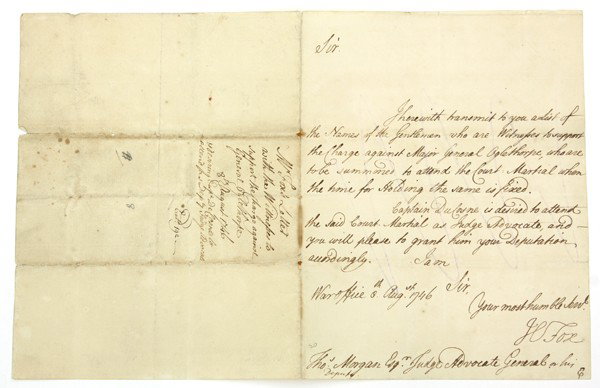 Sir.
I herewith transmit to you a List of
the Names of the Gentlemen who are Witnesses to support
the Charge against Major General Oglethorpe, who are
to be summoned to attend the Court Martial when
the time for Holding the same is fixed.
Captain is desired to attend
the Said Court Martial as Judge Advocate, and
you will please to grant him your Deputation
accordingly. I am
Sir.
War Office 8th Augst. 1746
Your most humble Servt.
H Fox
Thos. Morgan Esqr. Judge Advocate General or his
Deputy
Mr. Fox's Letter
with the Witnesses to
support the charge against
General Oglethorpe
8th August 1746